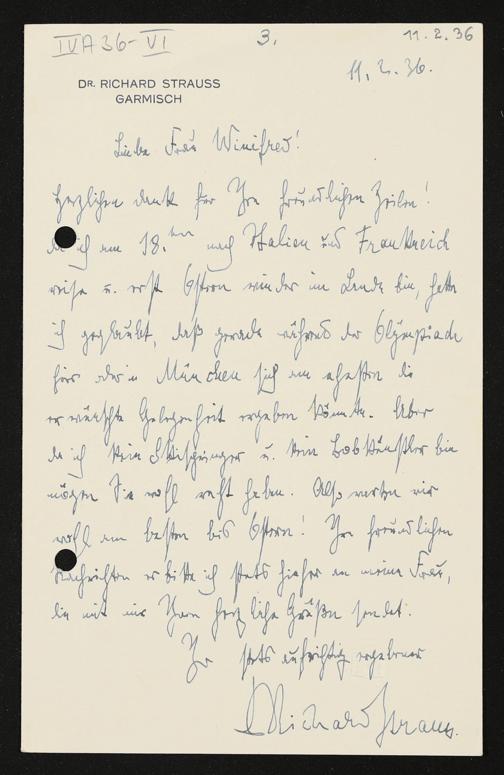 IVA 36-VI 3. 11.2.36
11. 2. 36.
DR. RICHARD STRAUSS
GARMISCH
Liebe Frau Winifred!
Herzlichen Dank für Ihre freundlichen Zeilen!
Da ich am 18.ten nach Italien und Frankreich
reise u. erst Ostern wieder im Lande bin, hatte
ich geglaubt, daß gerade während der Olympiade
hier oder in München sich am ehesten die
erwünschte Gelegenheit ergeben könnte. Aber
da ich kein Skispringer u. kein Bobkünstler bin
mögen Sie wohl recht haben. Also warten wir
wohl am besten bis Ostern! Ihre freundlichen
Nachrichten erbitte ich stets hieher an meine Frau,
die mit mir Ihnen herzliche Grüße sendet.
Ihr stets aufrichtig ergebener
Richard Strauss.